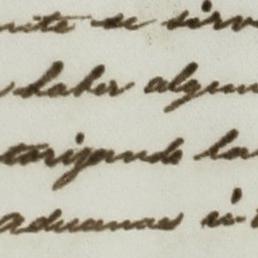 se sirv
haber algun
torizando la
aduanas